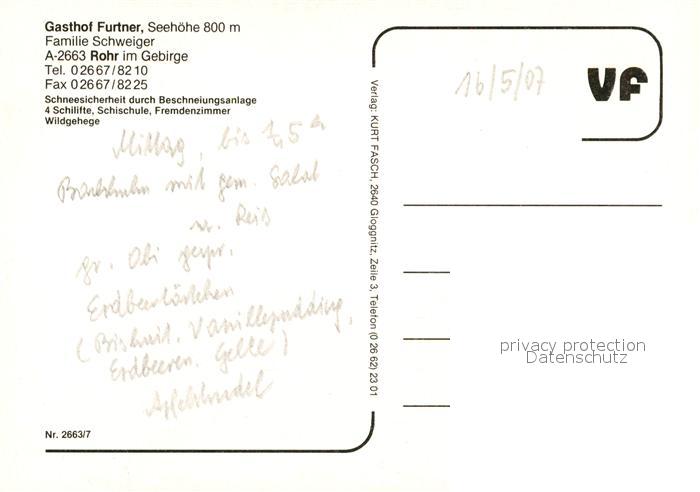 Gasthof Furtner, Seehöhe 800 m
Familie Schweiger
A-2663 Rohr im Gebirge
Tel. 02667/8210
Fax 02667/8225
Schneesicherheit durch Beschneiungsanlage
4 Schilifte, Schischule, Fremdenzimmer
Wildgehege
Mittag, bis
Backhuhn mit gem. Salat
Reis
gr. Obi gespr.
Erdbeertörtchen
(Biskuit, Vanillepudding,
Erdbeeren, Gelee)
Apfelstrudel
Nr. 2663/7
Verlag: KURT FASCH, 2640 Gloggnitz, Zeile 3, Telefon (0 26 62) 23 01
16/5/07
VF
privacy protection
Datenschutz